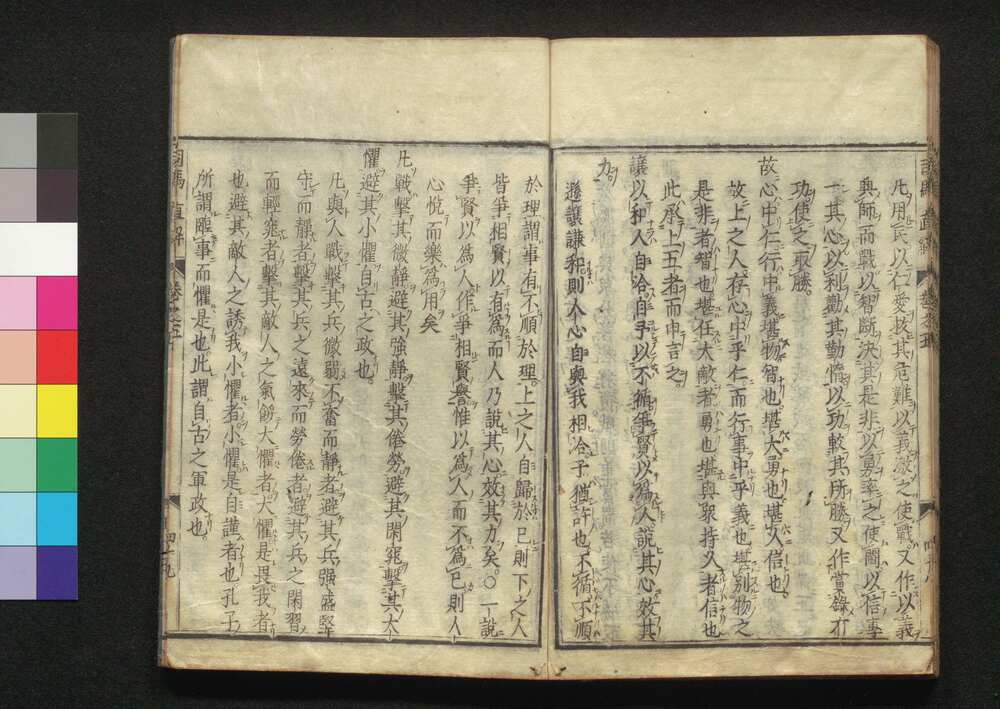 凡用民以仁愛救其危難以義激之使戰又作以義
與師而戰以智斷決其是非以勇率之使鬪以信專
一其心以利勸其勤惰以功較其所勝又作賞錄有
功使之取勝
故心中仁行中義堪物智也堪大勇也堪久信也
故上之人存心中乎仁而行事中乎義也堪別物之
是非者智也堪任大敵者勇也堪與衆持久者信也
此承上五者而申言之
讓以和人自洽自予以不循爭賢以爲人說其心效其
力
遜讓謙和則人心自與我相洽予猶許也不循不順
於理謂事有不順於理上之人自歸於己則下之人
皆爭相賢以有爲而人乃說其心效其力矣〇一說
爭賢以爲人作爭相賢譽惟以爲人而不爲己則人
心悅而樂爲用矣
凡戰擊其微靜避其強靜擊其倦勞避其閑窕擊其大
懼避其小懼自古之政也
凡與人戰擊其兵微弱不奮而靜者避其兵强盛堅
守而靜者擊其兵之遠來而勞倦者避其兵之閑習
而輕窕者擊其敵人之氣餒大懼者大懼是畏我者
也避其敵人之誘我小懼者小懼是自謹者也孔子
所謂臨事而懼是也此謂自古之軍政也
直解
四十九